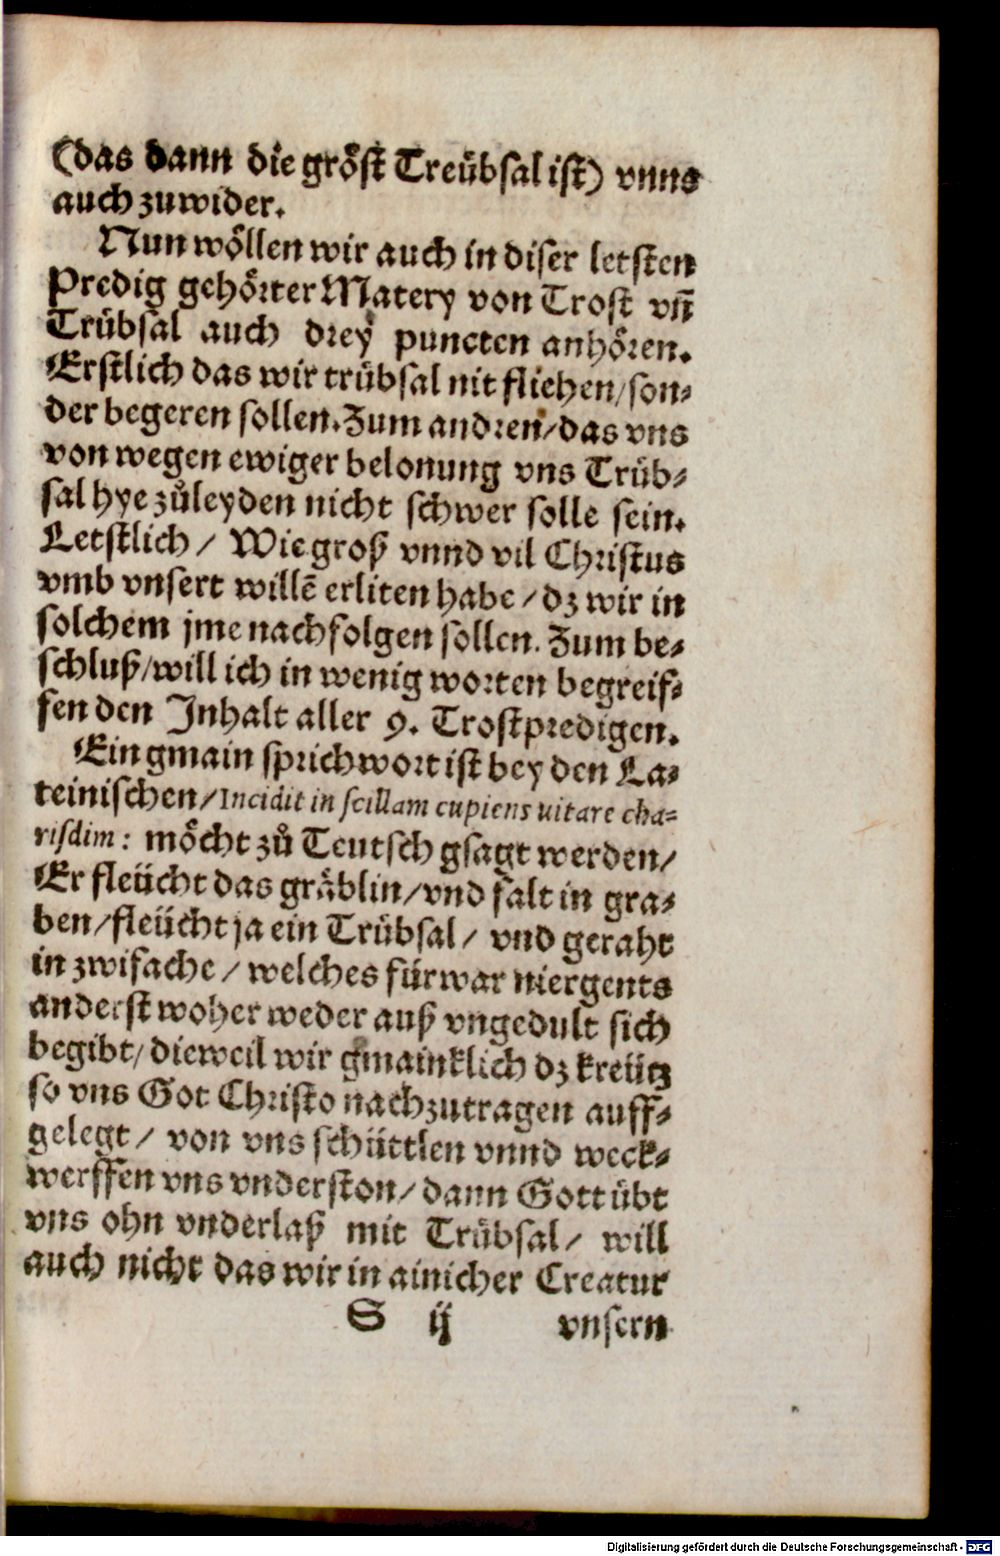 (das dann die gröst Treübsal ist) vnns
auch zuwider.
Nun wöllen wir auch in diser letsten
Predig gehörter Matery von Trost vn̄
Trübsal auch drey puncten anhören.
Erstlich das wir trübsal nit fliehen/son⸗
der begeren sollen. Zum andren/das vns
von wegen ewiger belonung vns Trüb⸗
sal hye zůleyden nicht schwer solle sein.
Letstlich / Wie groß vnnd vil Christus
vmb vnsert willē erliten habe / dz wir in
solchem jme nachfolgen sollen. Zum be⸗
schluß/will ich in wenig worten begreif⸗
fen den Inhalt aller 9. Trostpredigen.
Ein gmain sprichwort ist bey den La⸗
teinischen/Incidit in scillam cupiens uitare cha⸗
risdim: möcht zů Teutsch gsagt werden/
Er fleücht das gräblin/vnd falt in gra⸗
ben/fleücht ja ein Trübsal / vnd geraht
in zwifache / welches fürwar niergents
anderst woher weder auß vngedult sich
begibt/ dieweil wir gmainklich dz kreütz
so vns Got Christo nachzutragen auff⸗
gelegt / von vns schüttlen vnnd weck⸗
werffen vns vnderston/ dann Gott übt
vns ohn vnderlaß mit Trübsal / will
auch nicht das wir in ainicher Creatur
S ij vnsern
Digitalisierung gefördert durch die Deutsche Forschungsgemeinschaft - DFG